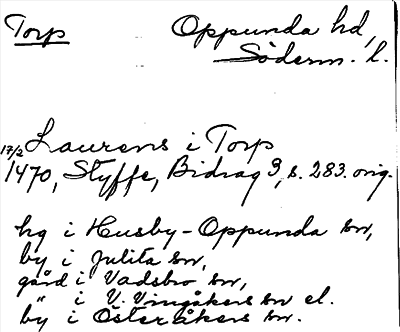 Torp Oppunda hd,
Söderm. l.
17/2 Laurens i Torp
1470, Styffe, Bidrag 3, s. 283. orig.
hg i Husby-Oppunda sn,
by i Julita sn,
gård i Vadsbro sn,
" i V. Vingåkers sn el.
by i Österåkers sn.